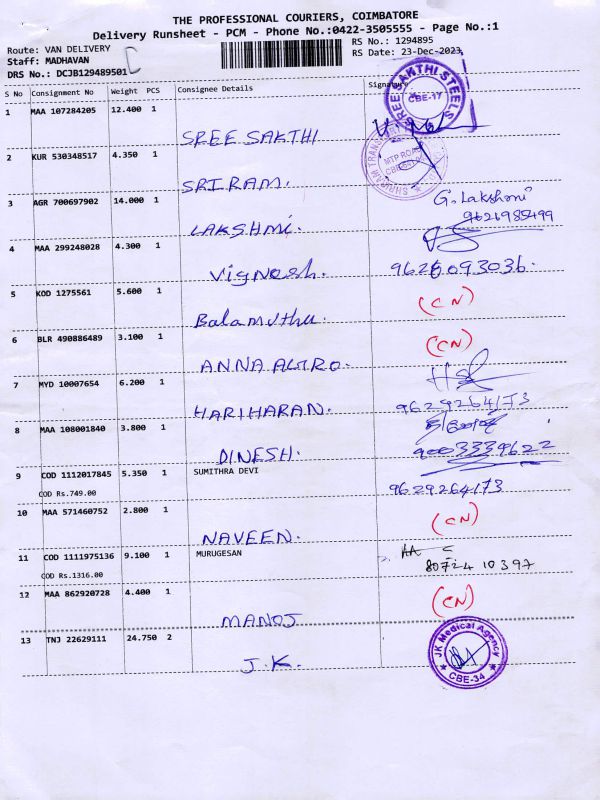 THE PROFESSIONAL COURIERS, COIMBATORE
Delivery Runsheet - PCM - Phone No.:0422-3505555 - Page No.:1
Route: VAN DELIVERY RS No.: 1294895
Staff: MADHAVAN RS Date: 23-Dec-2023
DRS No.: DCJB129489501
S No Consignment No Weight PCS Consignee Details Signature
SREE SAKTHI STEELS
CBE-17
1 MAA 107284205 12.400 1
SREE SAKTHI
MTP ROAD
2 KUR 530348517 4.350 1
SRIRAM.
3 AGR 700697902 14.000 1 G. Lakshmi
LAKSHMI.
4 MAA 299248028 4.300 1
Vignesh.
5 KOD 1275561 5.600 1 (CN)
Balamuthu.
6 BLR 490886489 3.100 1 (CN)
7 MYD 10007654 6.200 1
HARIHARAN. 9629264173
8 MAA 108001840 3.800 1
DINESH. 9003339622
9 COD 1112017845 5.350 1 SUMITHRA DEVI
COD Rs.749.00 9629264173
10 MAA 571460752 2.800 1 (CN)
NAVEEN.
11 COD 1111975136 9.100 1 MURUGESAN
COD Rs.1316.00 80724 10397
12 MAA 862920728 4.400 1 (CN)
MANOJ
13 TNJ 22629111 24.750 2
J.K.
JK Medical Agency
CBE-34